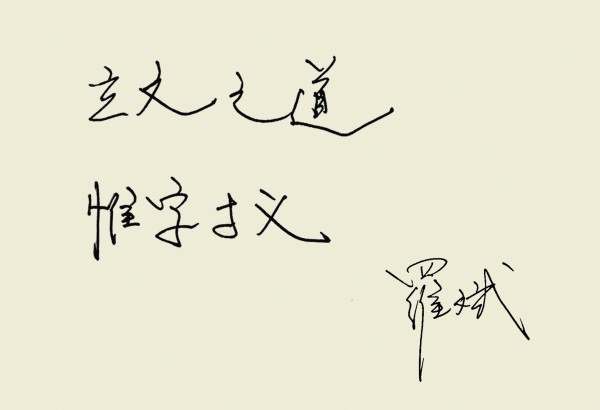 立文之道
惟字与义
羅斌